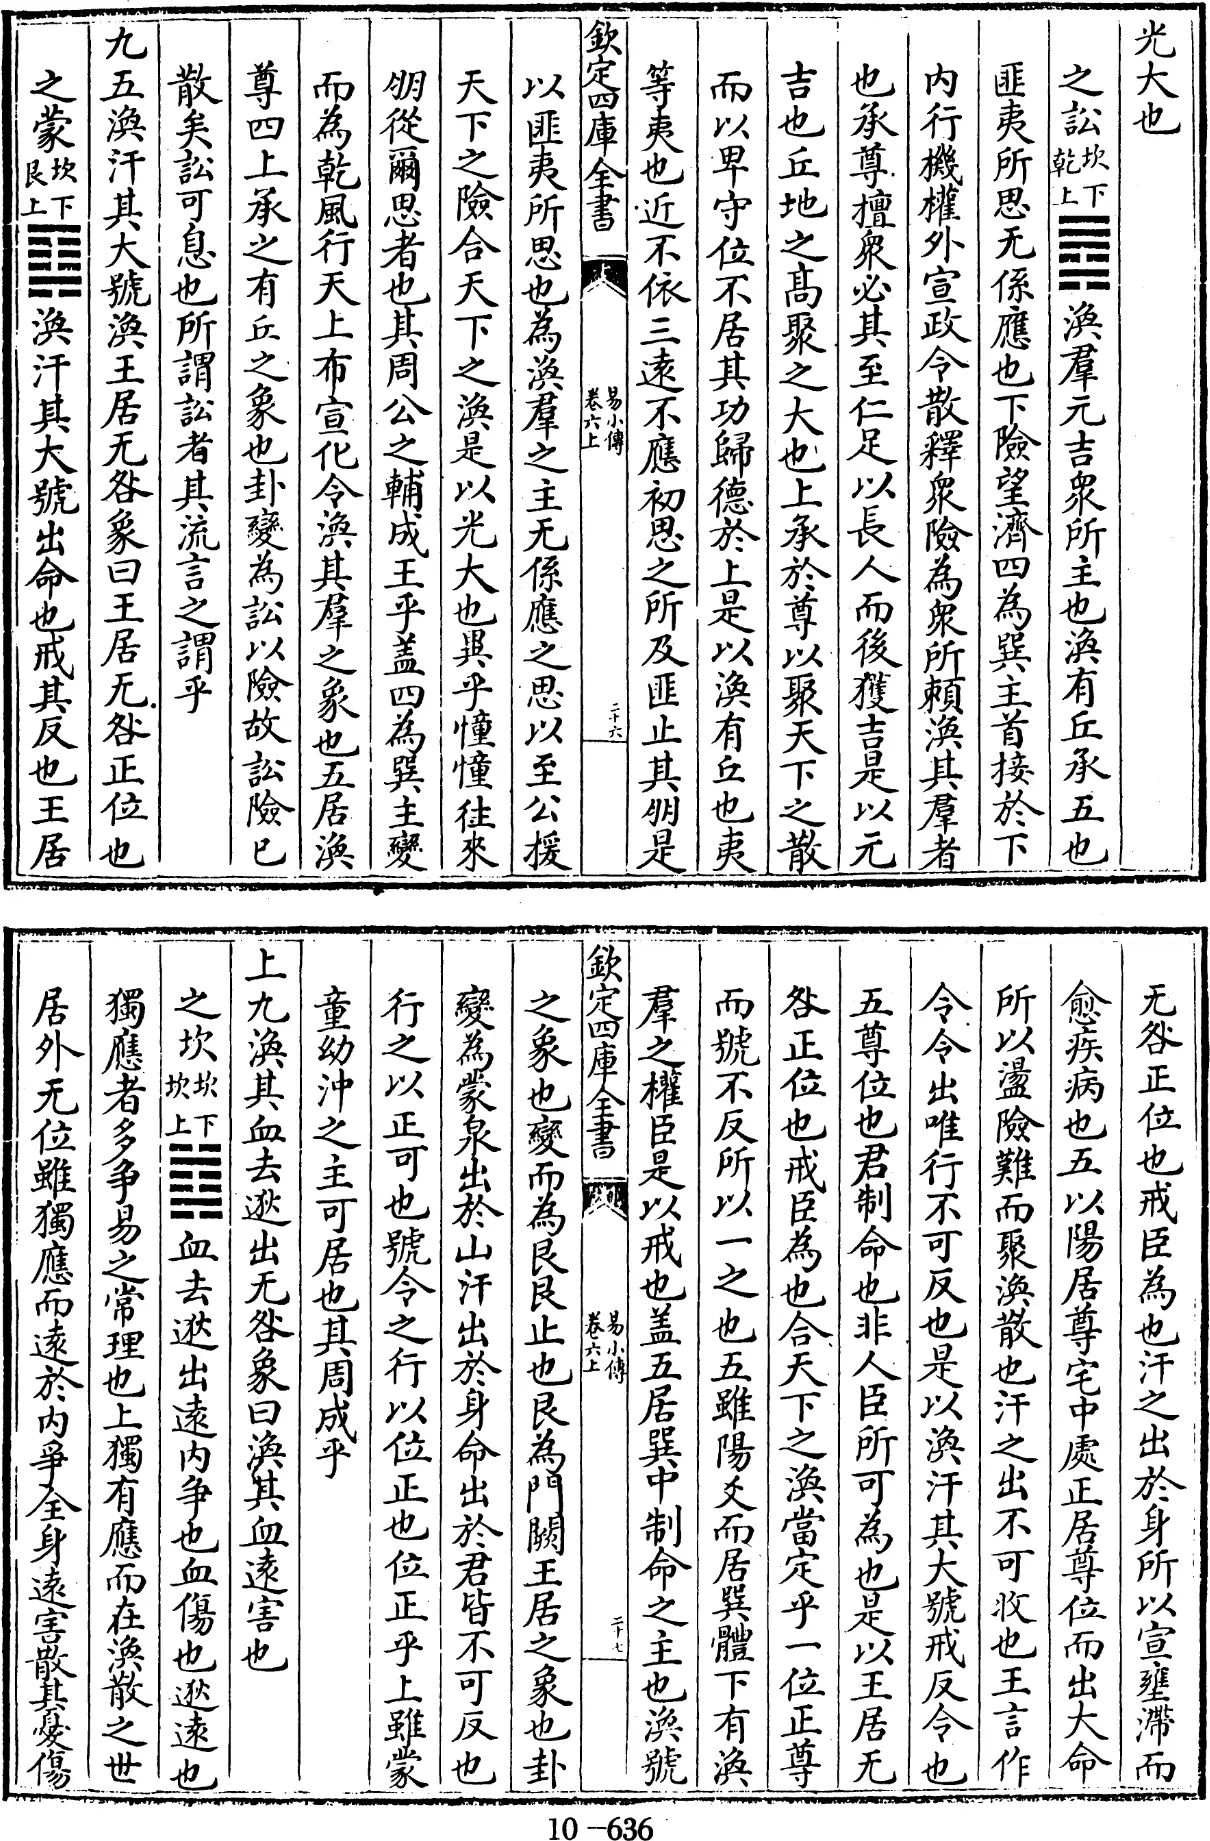 光大也
之訟坎下乾上䷅渙羣元吉衆所主也渙有丘承五也
匪夷所思无係應也下險望濟四為巽主首接於下
内行機權外宣政令散釋衆險為衆所頼渙其羣者
也承尊擅衆必其至仁足以長人而後獲吉是以元
吉也丘地之髙聚之大也上承於尊以聚天下之散
而以卑守位不居其功歸德於上是以渙有丘也夷
等夷也近不依三逺不應初思之所及匪止其朋是
欽定四庫全書
易小傳
卷六上
二十六
以匪夷所思也為渙羣之主无係應之思以至公援
天下之險合天下之渙是以光大也異乎憧憧往來
朋從爾思者也其周公之輔成王乎盖四為巽主變
而為乾風行天上布宣化令渙其羣之象也五居渙
尊四上承之有丘之象也卦變為訟以險故訟險已
散矣訟可息也所謂訟者其流言之謂乎
九五渙汗其大號渙王居无咎象曰王居无咎正位也
之蒙坎下艮上䷃渙汗其大號出命也戒其反也王居
无咎正位也戒臣為也汗之出於身所以宣壅滯而
愈疾病也五以陽居尊宅中處正居尊位而出大命
所以盪險難而聚渙散也汗之出不可收也王言作
令令出唯行不可反也是以渙汗其大號戒反令也
五尊位也君制命也非人臣所可為也是以王居无
咎正位也戒臣為也合天下之渙當定乎一位正尊
而號不反所以一之也五雖陽爻而居巽體下有渙
羣之權臣是以戒也盖五居巽中制命之主也渙號
欽定四庫全書
易小傳
卷六上
二十七
之象也變而為艮艮止也艮為門闕王居之象也卦
變為蒙泉出於山汗出於身命出於君皆不可反也
行之以正可也號令之行以位正也位正乎上雖蒙
童幼沖之主可居也其周成乎
上九渙其血去逖出无咎象曰渙其血逺害也
之坎坎下坎上䷜血去逖出逺内争也血傷也逖逺也
獨應者多争易之常理也上獨有應而在渙散之世
居外无位雖獨應而逺於内爭全身逺害散其憂傷
10-636